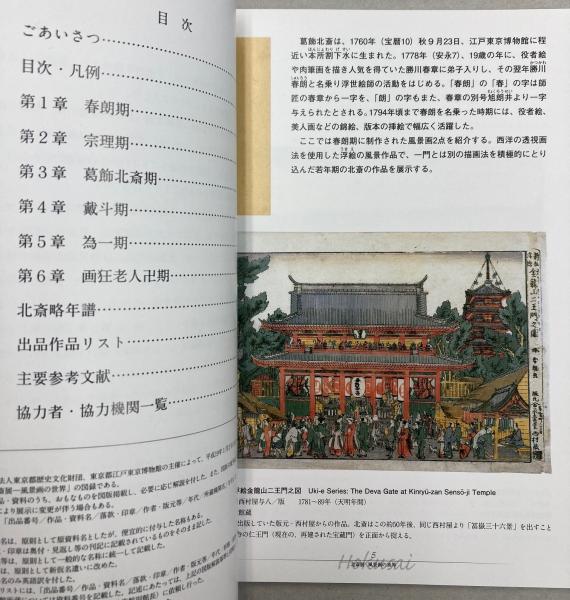 目次
ごあいさつ
目次・凡例
第1章 春朗期
第2章 宗理期
第3章 葛飾北斎期
第4章 戴斗期
第5章 為一期
第6章 画狂老人卍期
北斎略年譜
出品作品リスト
主要参考文献
協力者・協力機関一覧
法人東京都歴史文化財団、東京都江戸東京博物館の主催によって、平成
斎展―風景画の世界」の図録である。
品・資料のうち、おもなものを図版掲載し、必要に応じ解説を付した。また、
により展示に変更が伴う場合もある。
「出品番号／作品・資料名／落款・印章／作者・版元等／年代・
名は、原則として原資料名としたが、便宜的に付与した名称もある。
・印章は奥付・見返し等の刊記に記載されているものをそのまま記した。
等は、原則として一般的な名称に統一して記載した。
原則として新仮名遣いに改めた。
名のみ英語訳を付した。
リストには、「出品番号／作品・資料名／落款・印章／作者・版元等／年代・
葛飾北斎は、1760年（宝暦10）秋9月23日、江戸東京博物館に程
近い本所割下水に生まれた。1778年（安永7）、19歳の年に、役者絵
や肉筆画を描き人気を得ていた勝川春章に弟子入りし、その翌年勝川
春朗と名乗り浮世絵師の活動をはじめる。「春朗」の「春」の字は師
匠の春章から一字を、「朗」の字もまた、春章の別号旭朗井より一字
与えられたとされる。1794年頃まで春朗を名乗った時期には、役者絵、
美人画などの錦絵、版本の挿絵で幅広く活躍した。
ここでは春朗期に制作された風景画2点を紹介する。西洋の透視画
法を使用した浮絵の風景作品で、一門とは別の描画法を積極的にとり
込んだ若年期の北斎の作品を展示する。
浮絵金龍山二王門之図 Uki-e Series: The Deva Gate at Kinryū-zan Sensō-ji Temple
西村屋与八／版 1781～89年（天明年間）
館蔵
出版していた版元・西村屋からの作品。北斎はこの前50年後、同じ西村屋より「冨嶽三十六景」を出すこと
寺の仁王門（現在の、再建された宝蔵門）を正面から捉える。
5
Hokusai